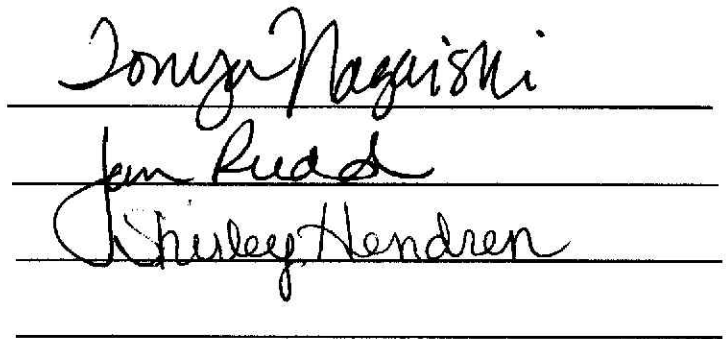 Tonya Nagaishi
Jan Rudd
Shirley Hendren